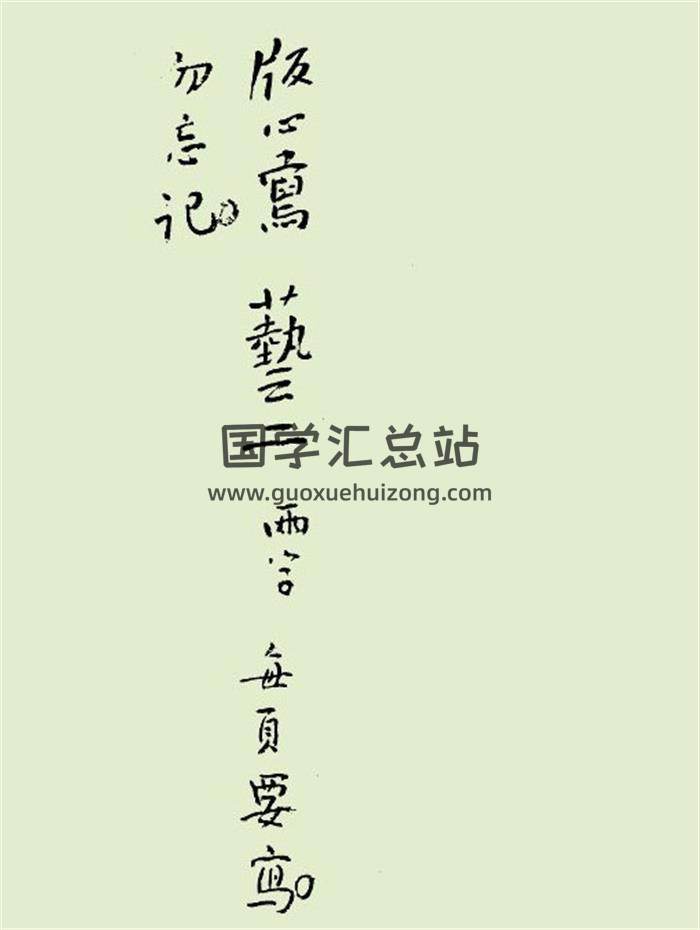 版心寫 藝 兩字 每頁要寫。
勿忘记。
国学汇总站
www.guoxuehuizong.com